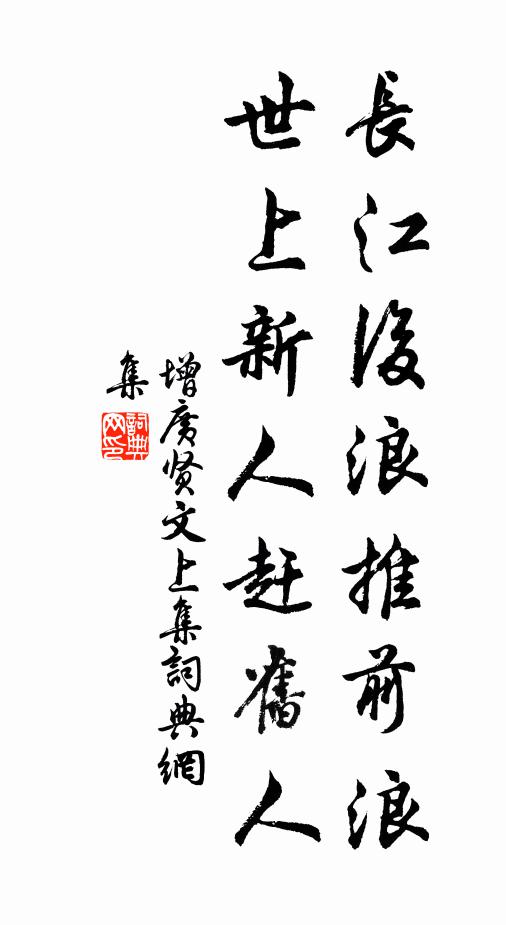 長江後浪推前浪
世上新人赶舊人
增廣贤文上集詞典網
集
詞典
网印